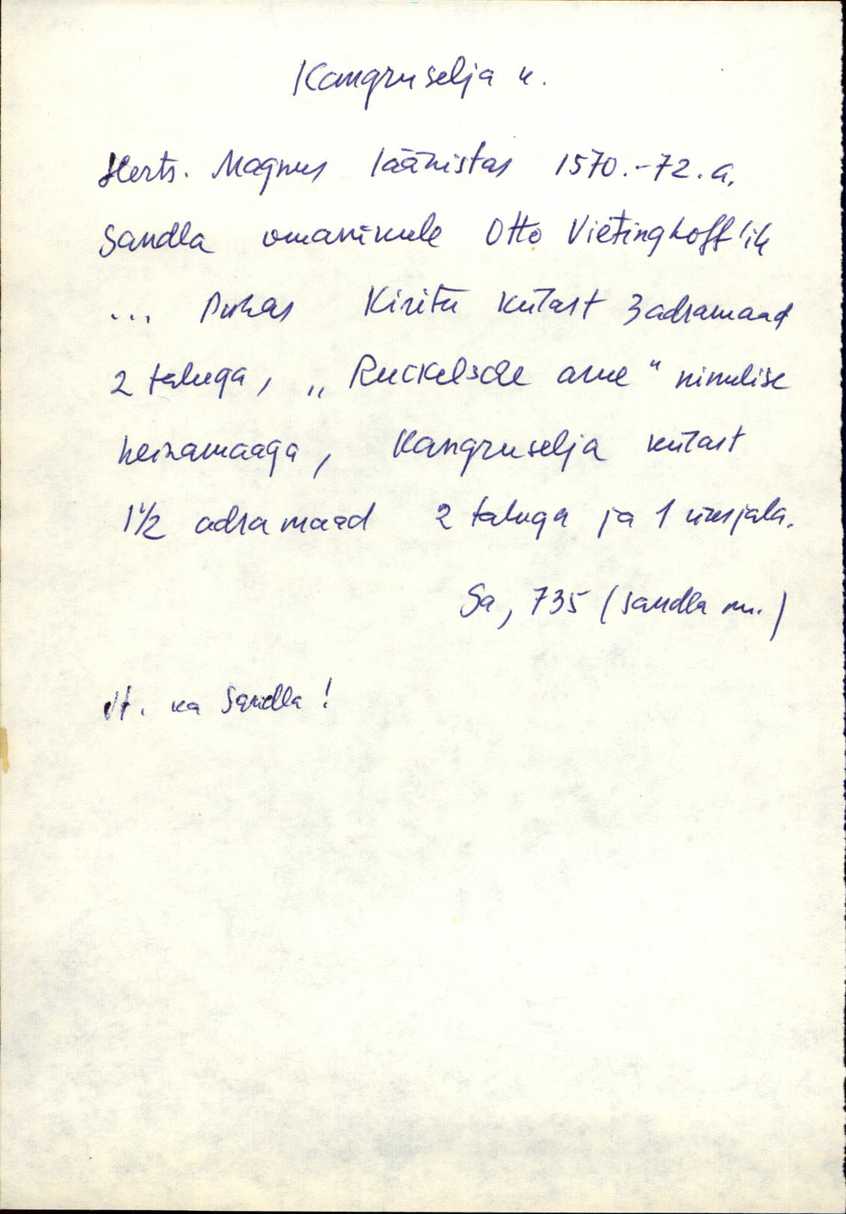 Kangruselja k.
Herts. Magnus läänistas 1570.-72. a.
Sandla omanikule Otto Vietinghoff'ile
... Puhas Kiritu külast 3 adramaad
2 taluga, „Ruckelsche aue" nimelise
heinamaaga, Kangruselja külast
1 1/2 adramaad 2 taluga ja 1 üksjala.
Sa, 735 (Sandla m.)
Vt. ka Sandla!